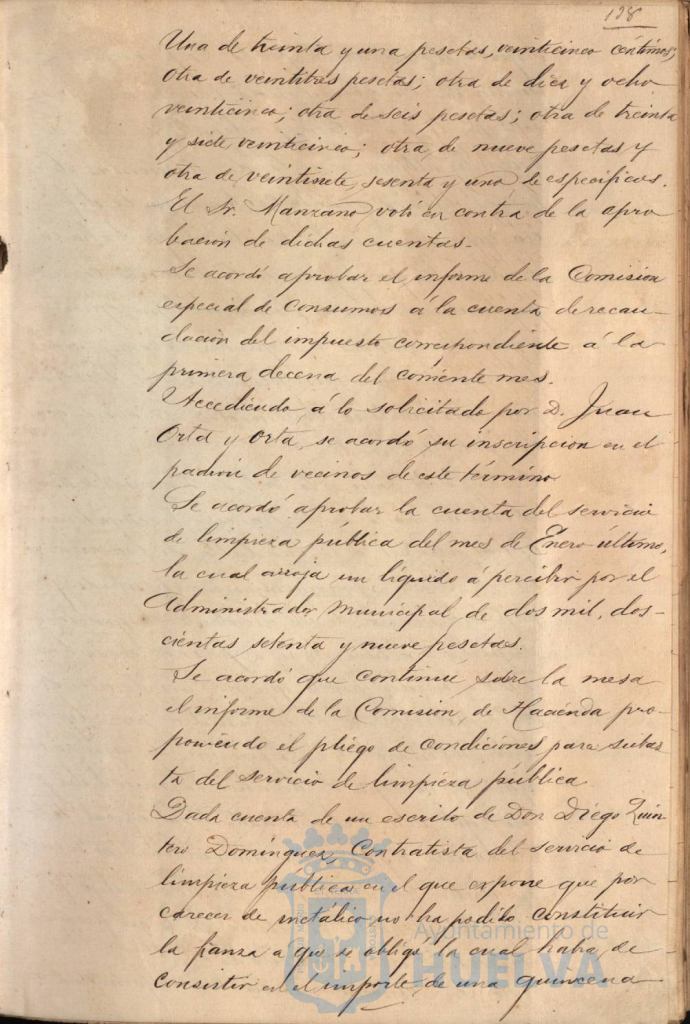 128
Una de treinta y una pesetas, veinticinco céntimos;
otra de veintitres pesetas; otra de diez y ocho
veinticinco; otra de seis pesetas; otra de treinta
y siete, veinticinco; otra, de nueve pesetas y
otra de veintisiete, sesenta y una de especificos.
El Sr. Manzano votó en contra de la apro
bación de dichas cuentas.
Se acordó aprobar el informe de la Comision
especial de Consumos á la cuenta de recau-
dación del impuesto correspondiente á la
primera decena del corriente mes.
Accediendo á lo solicitado por D. Juan
Orta y Orta, se acordó su inscripcion en el
padron de vecinos de este término
Se acordó aprobar la cuenta del servicio
de limpieza pública del mes de Enero último,
la cual arroja un líquido á percibir por el
Administrador Municipal de dos mil, dos-
cientas setenta y nueve pesetas.
Se acordó que continúe sobre la mesa
el informe de la Comision de Hacienda pro-
poniendo el pliego de Condiciones para subas
ta del servicio de limpieza pública
Dada cuenta de un escrito de Don Diego Quin
tero Dominguez, Contratista del servicio de
limpieza pública en el que expone que por
carecer de metálico no ha podido constituir
la fianza a que se obligó la cual habia de
consistir en el importe de una quincena
Ayuntamiento de
HUELVA